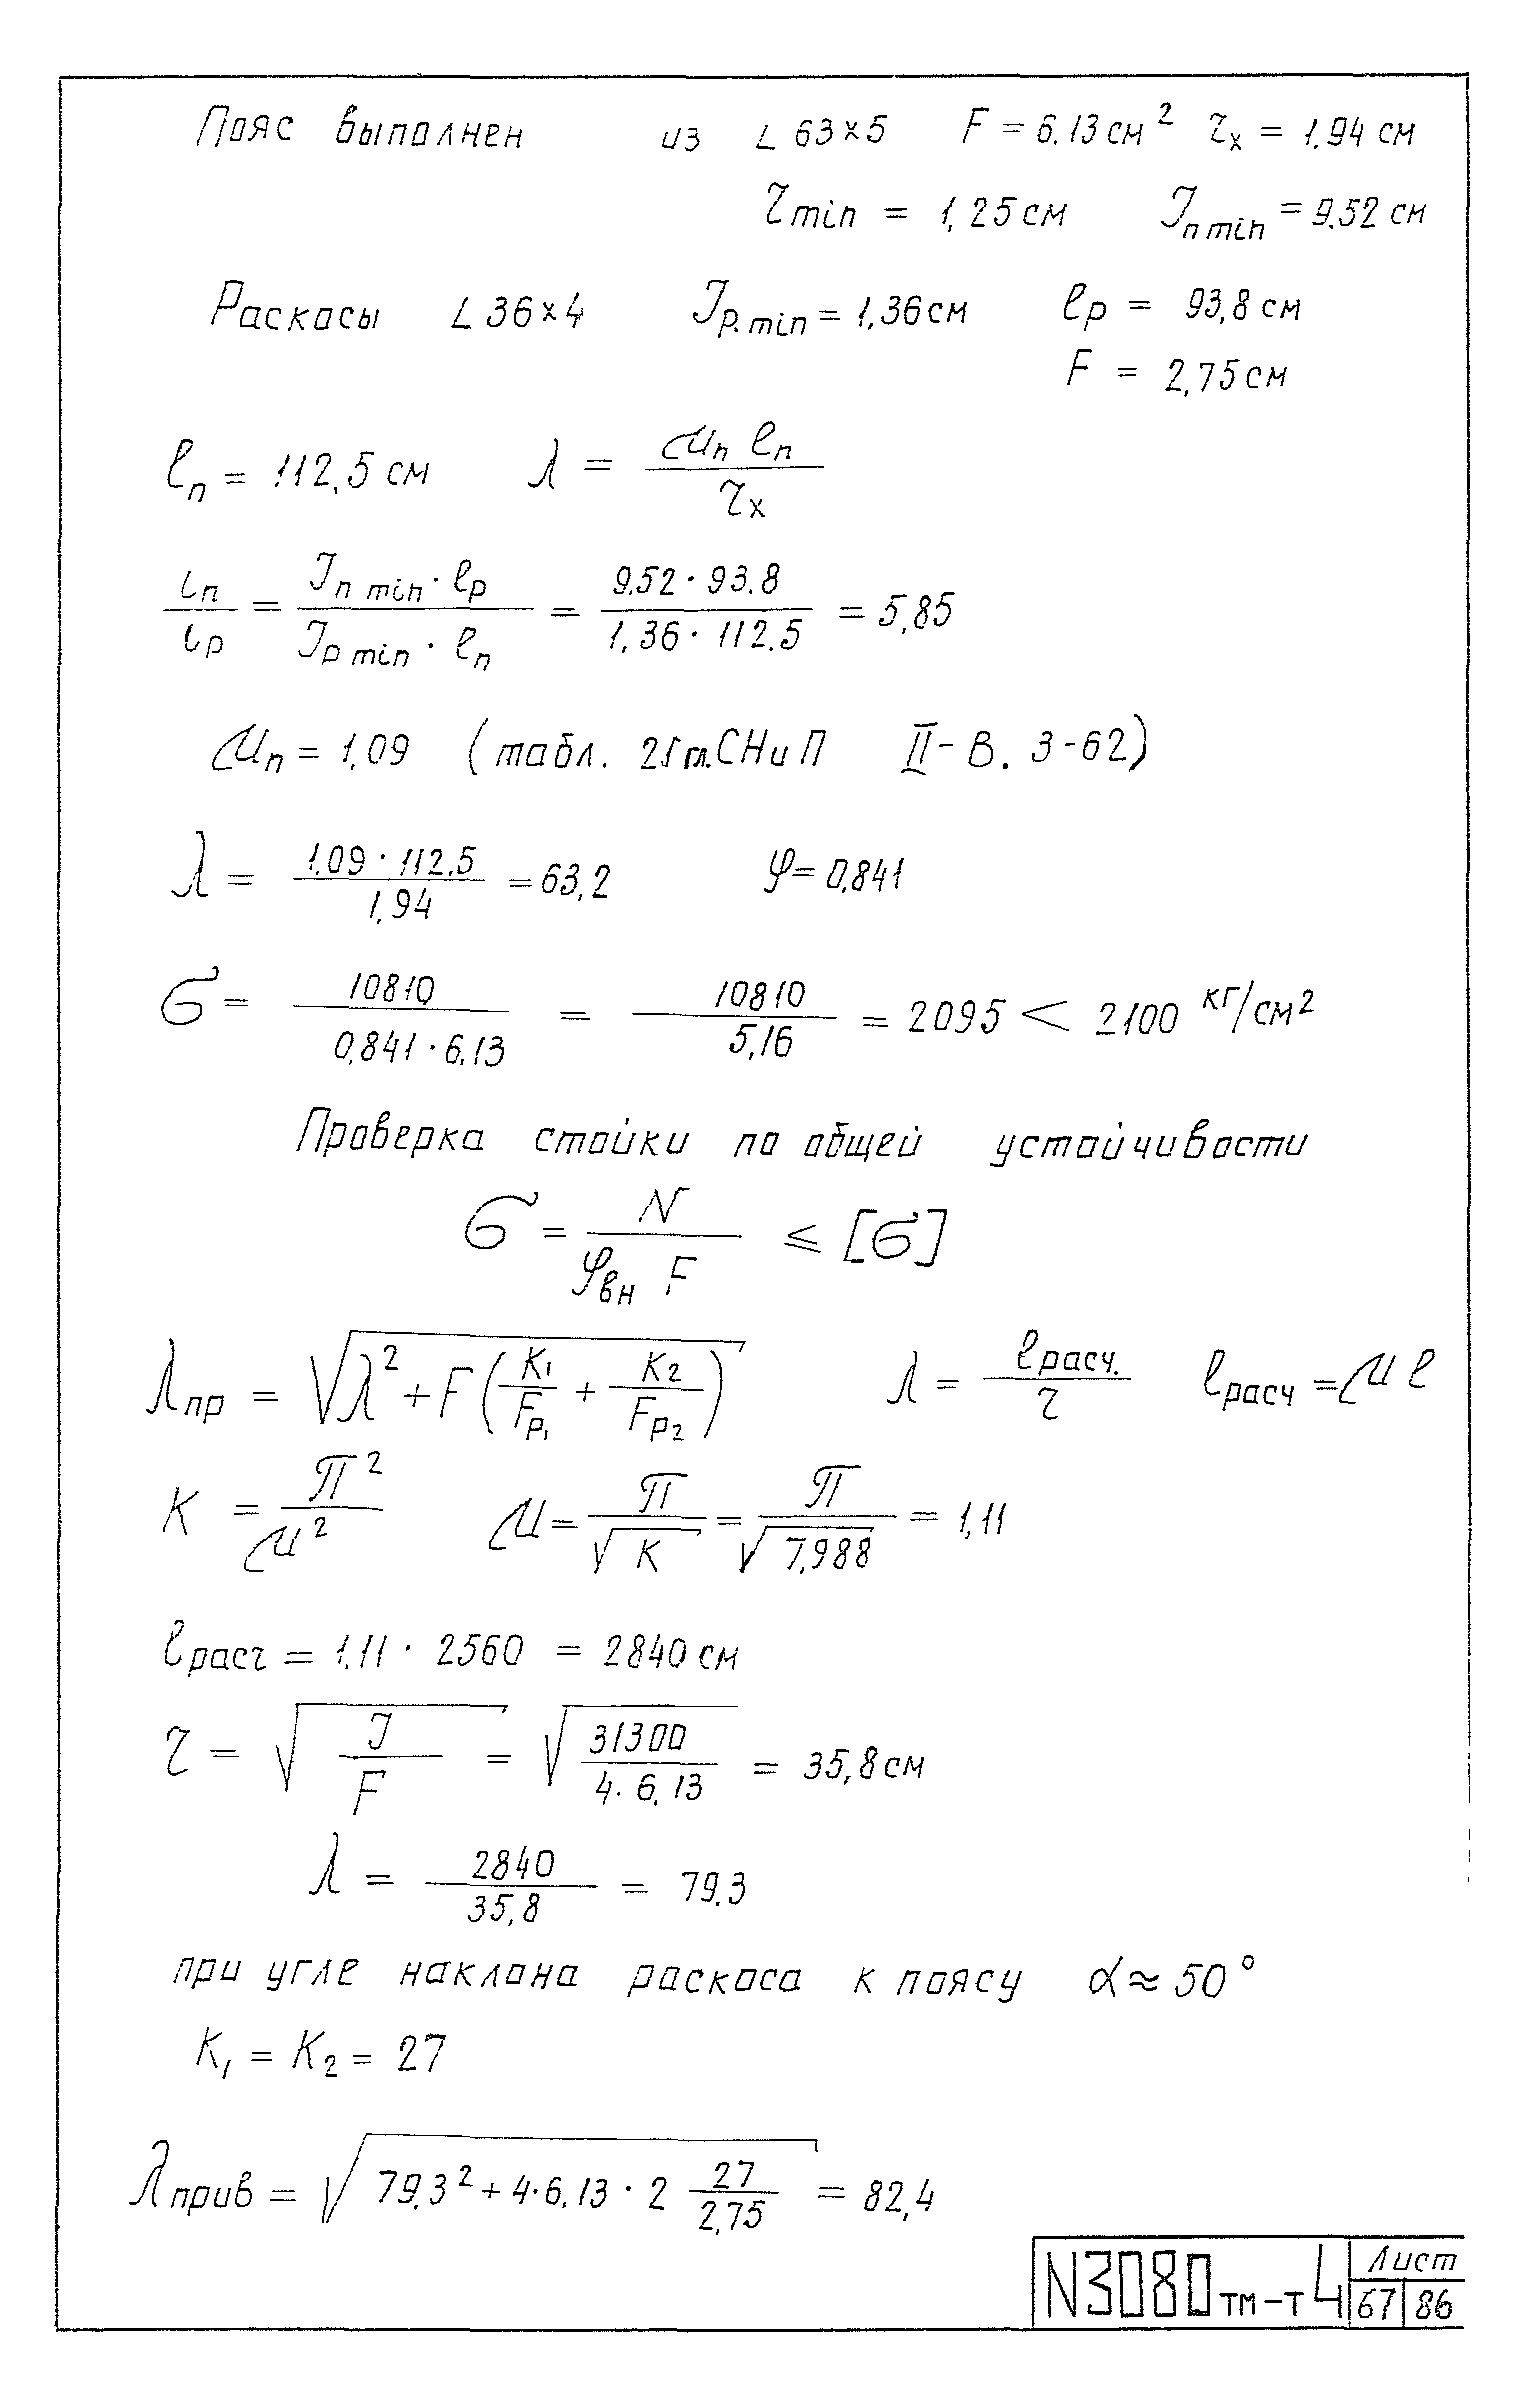 Пояс выполнен из ∟ 63×5 F = 6.13 см² τₓ = 1.94 см
τmin = 1,25 см Jп min = 9.52 см
Раскосы ∟ 36×4 Jр.min = 1,36 см ℓр = 93,8 см
F = 2,75 см
ℓп = 112,5 см λ = μп ℓп / τₓ
iп / iр = Jп min · ℓр / Jр min · ℓп = 9.52 · 93.8 / 1,36 · 112.5 = 5,85
μп = 1,09 (табл. 21 гл. СНиП II-В. 3-62)
λ = 1.09 · 112.5 / 1.94 = 63,2 φ = 0.841
σ = 10810 / 0,841 · 6.13 = 10810 / 5,16 = 2095 < 2100 кг/см²
Проверка стойки по общей устойчивости
σ = N / φвн F ≤ [σ]
λпр = √(λ² + F (K₁ / Fр₁ + K₂ / Fр₂)) λ = ℓрасч. / τ ℓрасч = μ ℓ
K = π² / μ² μ = π / √K = π / √7,988 = 1,11
ℓрасч = 1.11 · 2560 = 2840 см
τ = √(J / F) = √(31300 / 4 · 6,13) = 35,8 см
λ = 2840 / 35,8 = 79.3
при угле наклона раскоса к поясу α ≈ 50°
K₁ = K₂ = 27
λприв = √(79.3² + 4 · 6.13 · 2 27 / 2,75) = 82,4
N3080тм-т4 Лист
67 86